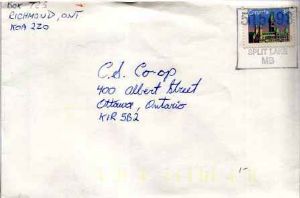 BOX 723
RICHMOND, ONT
K0A 2Z0
SPLIT LAKE
MB
C.S. Co-op
400 Albert Street
Ottawa, Ontario
K1R 5B2